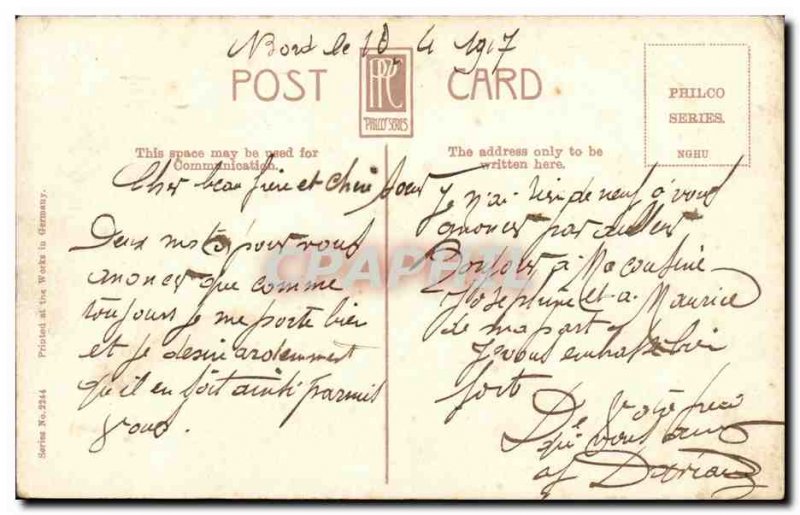 Nord le 10 4 1917
POST CARD
PHILCO SERIES
PHILCO
SERIES.
NGHU
This space may be used for
Communication.
The address only to be
written here.
Cher beau frère et Chère Sœur
Deux mots pour vous
anoncer que comme
toujours je me porte bien
et je desire ardemment
qu'il en soit ainsi parmit
vous.
Je n'ai rien de neuf à vous
anoncer par ailleurs
Bonjour à Ma cousine
Josephine et a Maurice
de ma part
Je vous embrasse bien
fort
Votre frère
qui vous aime
Printed at the Works in Germany.
Series No. 2244
CPAPHIL